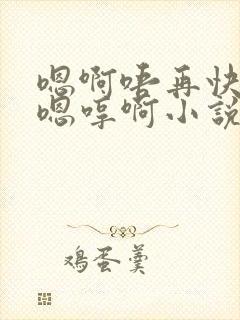 嗯啊唔再快
嗯哼啊小說
鸡蛋羹